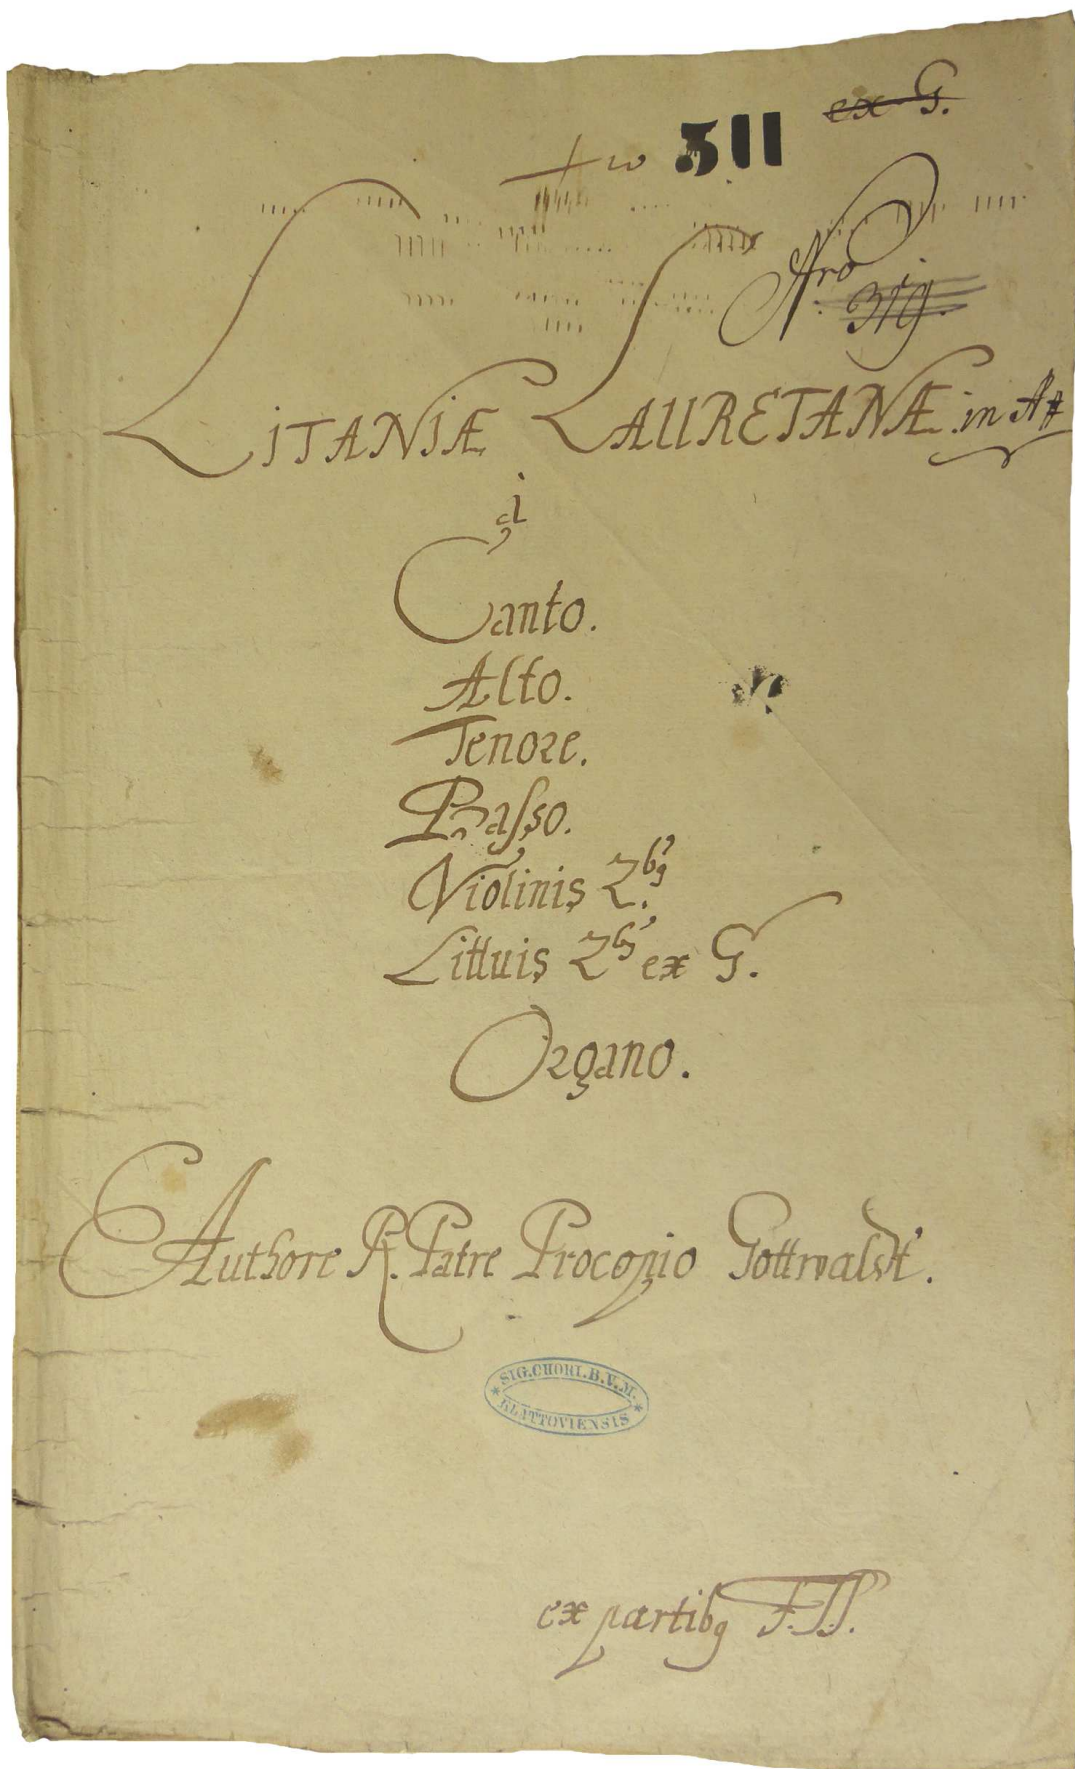 ex G.
511
Nro
319.
LITANIÆ LAURETANÆ in A#
à
Canto.
Alto.
Tenore.
Basso.
Violinis 2.bꝰ
Littuis 2bꝰ ex G.
Organo.
Authore R. Patre Procopio Gottwaldt.
* SIG. CHORI. B. V. M. *
KLATTOVIENSIS
ex partibꝰ